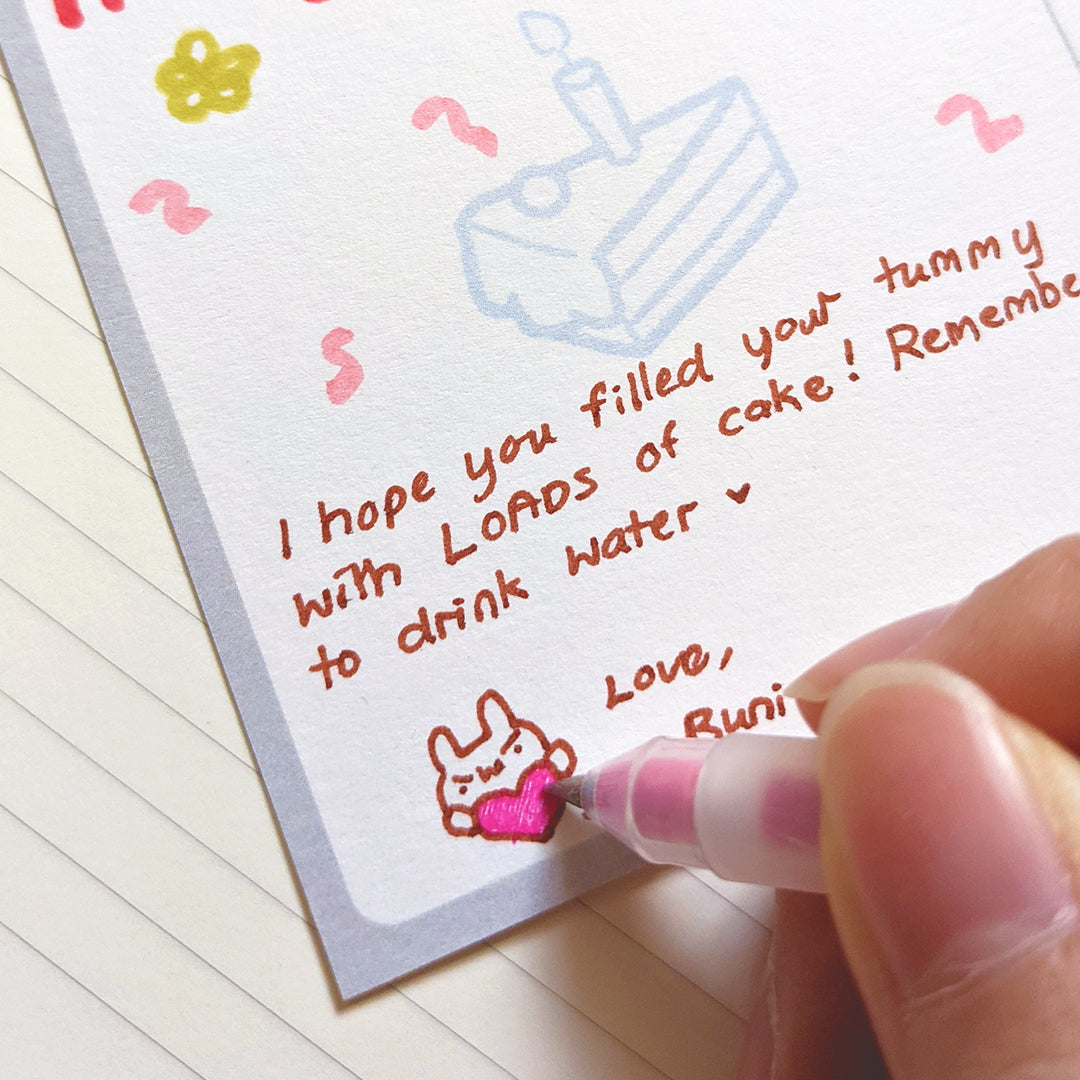 I hope you filled your tummy
with LOADS of cake! Remembe
to drink water
Love,
Buni